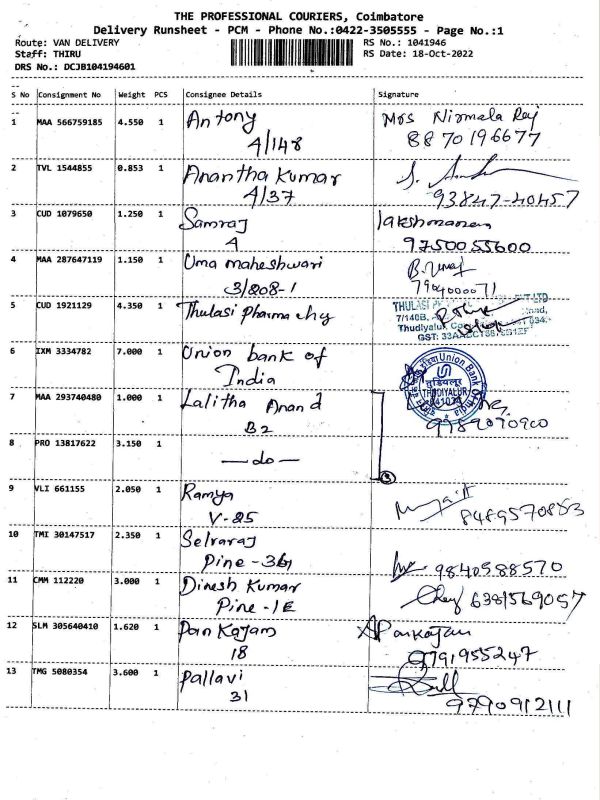 THE PROFESSIONAL COURIERS, Coimbatore
Delivery Runsheet - PCM - Phone No.:0422-3505555 - Page No.:1
Route: VAN DELIVERY RS No.: 1041946
Staff: THIRU RS Date: 18-Oct-2022
DRS No.: DCJB104194601
S No Consignment No Weight PCS Consignee Details Signature
1 MAA 566759185 4.550 1 Antony Mrs Nirmala Raj
A/148 8870196677
2 TVL 1544855 0.853 1 Anantha Kumar
A/37 93847-40457
3 CUD 1079650 1.250 1 Samraj lakshmanan
A 9750055600
4 MAA 287647119 1.150 1 Uma maheshwari
3/808-1 7904000071
5 CUD 1921129 4.350 1 Thulasi Pharmacy THULASI
7/140B,
Thudiyalur,
GST:
6 IXM 3334782 7.000 1 Union bank of Union Bank of India
India तुडियलूर
THUDIYALUR
641034
7 MAA 293740480 1.000 1 Lalitha Anand
B2 9789070900
8 PRO 13817622 3.150 1 —do—
9 VLI 661155 2.050 1 Ramya
V-25 8489570853
10 TMI 30147517 2.350 1 Selvaraj
Pine - 3G1 9840588570
11 CMM 112220 3.000 1 Dinesh Kumar
Pine - 1E 6381569057
12 SLM 305640410 1.620 1 Pankajam Pankajam
18 9791955247
13 TMG 5080354 3.600 1 Pallavi
31 9790912111